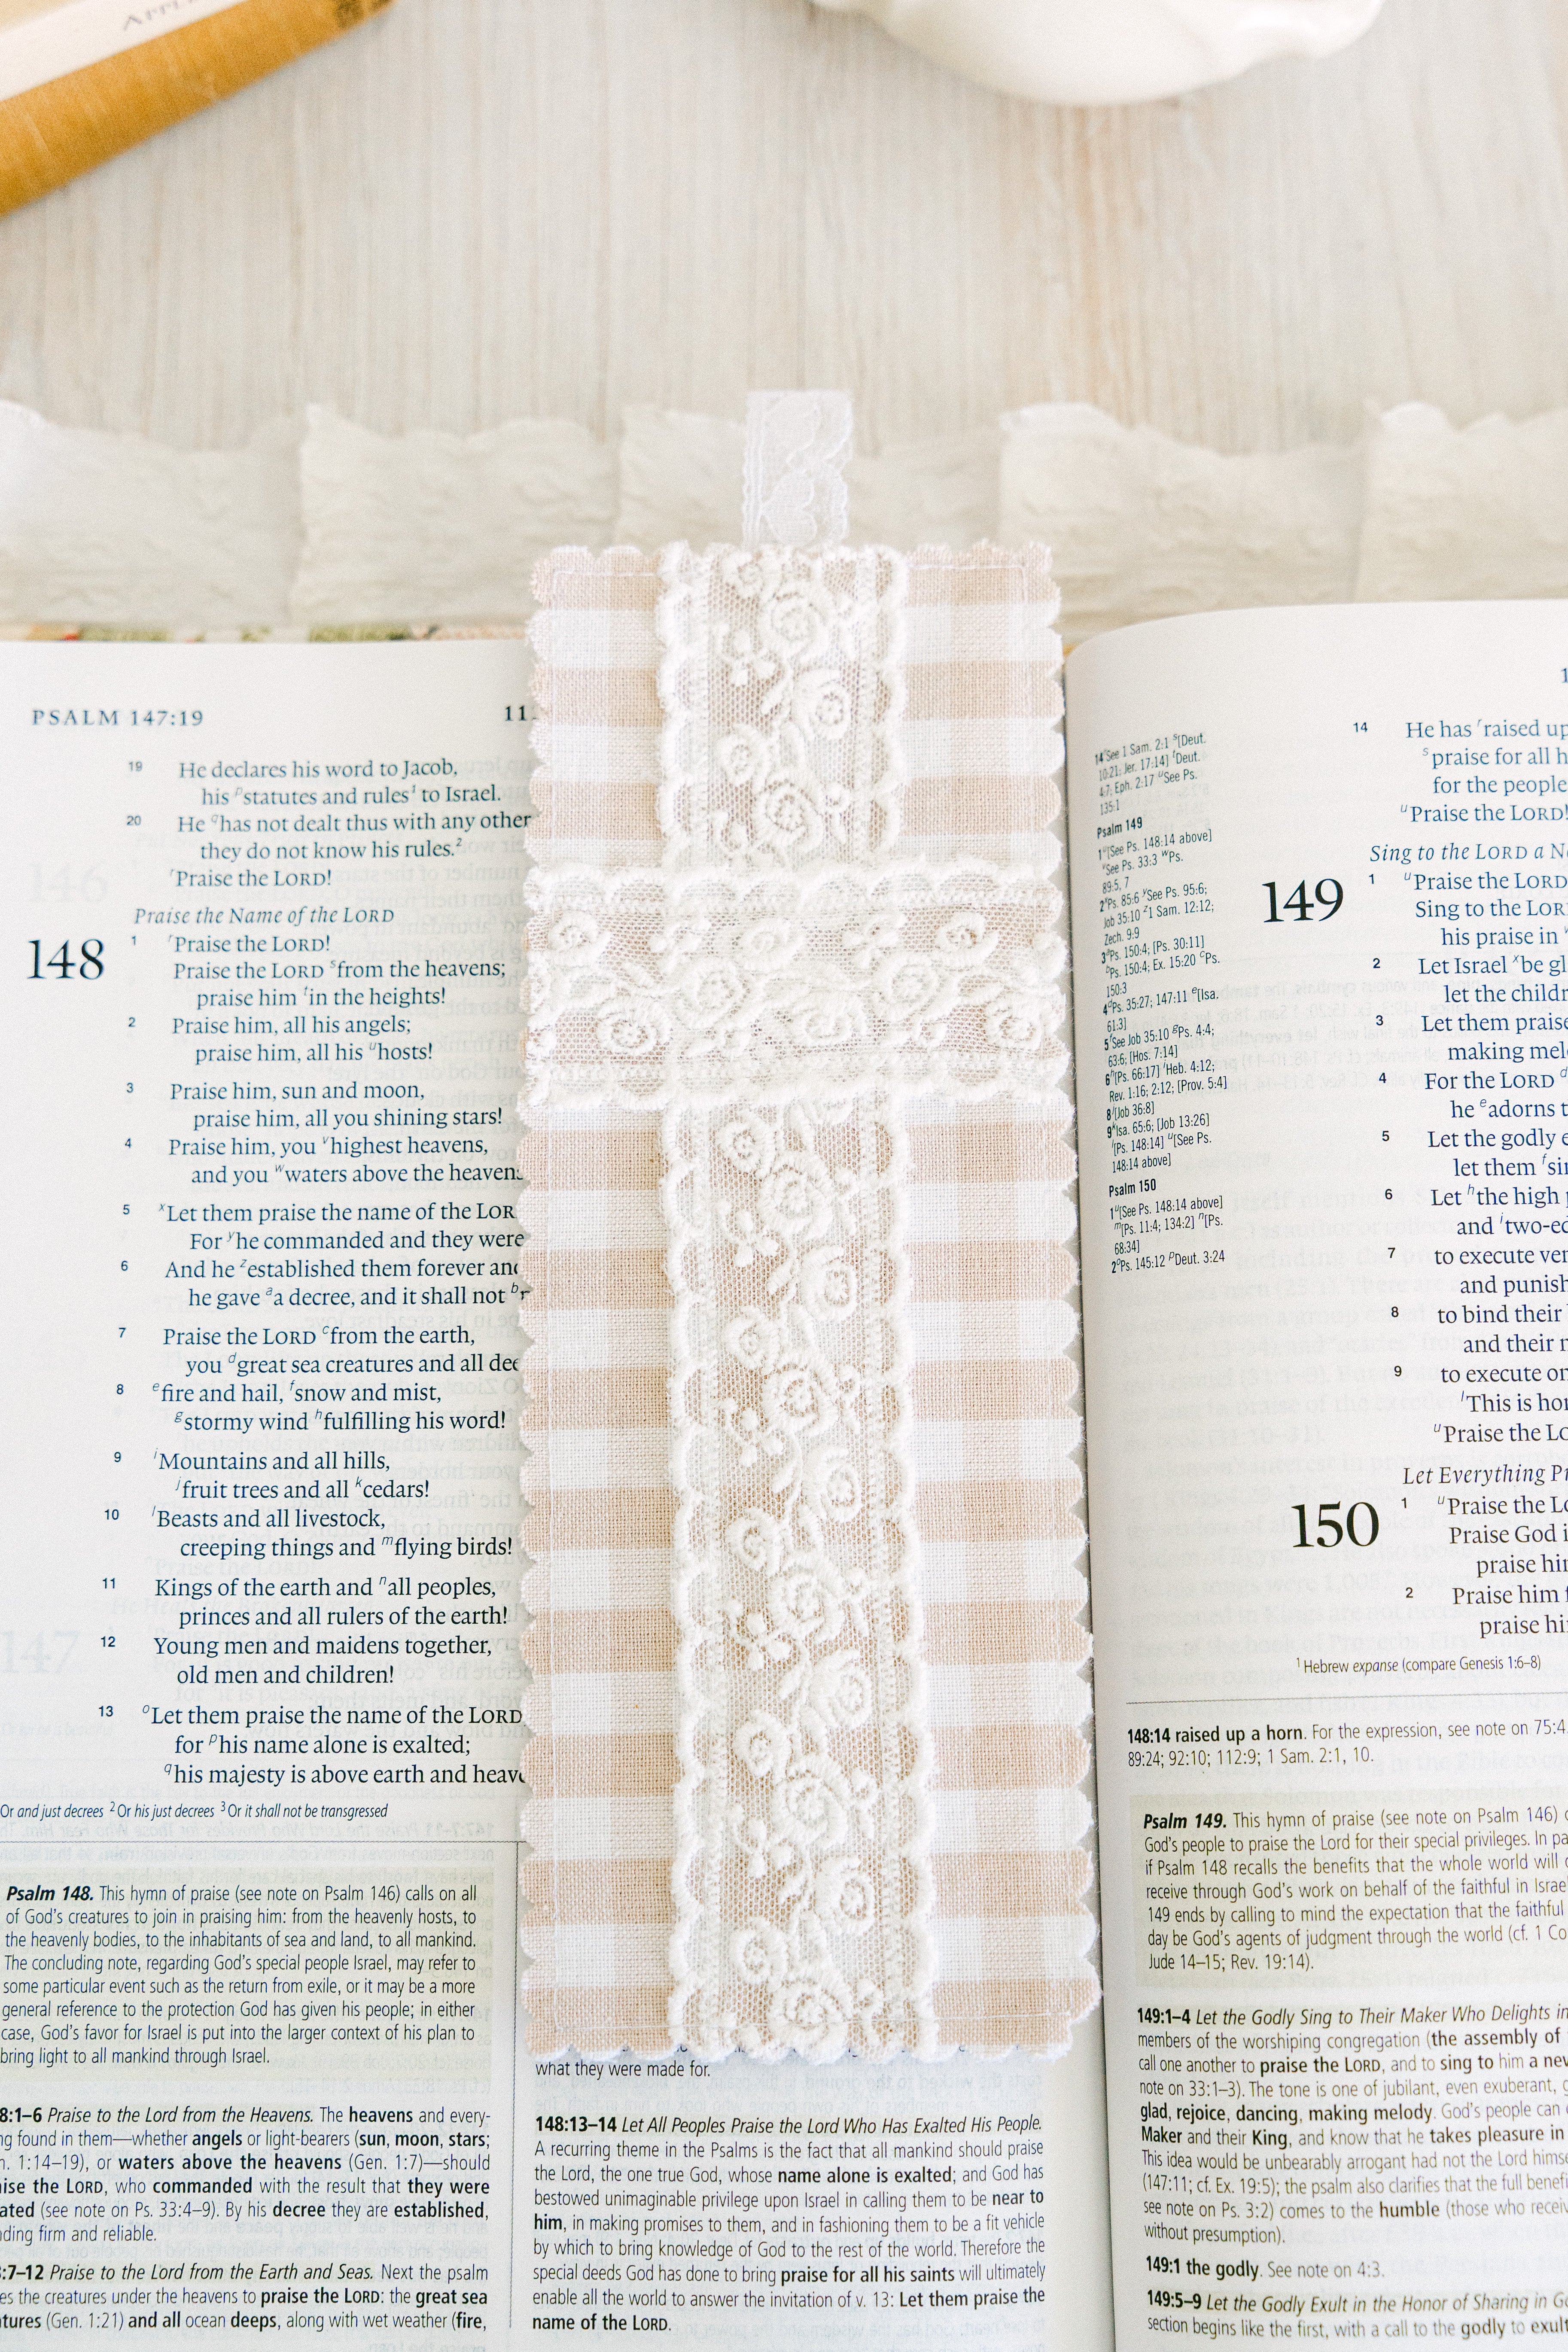 PSALM 147:19
19 He declares his word to Jacob,
his pstatutes and rules1 to Israel.
20 He qhas not dealt thus with any other
they do not know his rules.2
rPraise the LORD!
Praise the Name of the LORD
148
1 rPraise the LORD!
Praise the LORD sfrom the heavens;
praise him tin the heights!
2 Praise him, all his angels;
praise him, all his uhosts!
3 Praise him, sun and moon,
praise him, all you shining stars!
4 Praise him, you vhighest heavens,
and you wwaters above the heavens
5 xLet them praise the name of the
For yhe commanded and they were
6 And he zestablished them forever
he gave aa decree, and it shall not
7 Praise the LORD cfrom the earth,
you dgreat sea creatures and all
8 efire and hail, fsnow and mist,
gstormy wind hfulfilling his word!
9 iMountains and all hills,
jfruit trees and all kcedars!
10 lBeasts and all livestock,
creeping things and mflying birds!
11 Kings of the earth and nall peoples,
princes and all rulers of the earth!
12 Young men and maidens together,
old men and children!
13 oLet them praise the name of the LORD
for phis name alone is exalted;
qhis majesty is above earth and
Or and just decrees 2Or his just decrees 3Or it shall not be transgressed
Psalm 148. This hymn of praise (see note on Psalm 146) calls on all
of God's creatures to join in praising him: from the heavenly hosts, to
the heavenly bodies, to the inhabitants of sea and land, to all mankind.
The concluding note, regarding God's special people Israel, may refer to
some particular event such as the return from exile, or it may be a more
general reference to the protection God has given his people; in either
case, God's favor for Israel is put into the larger context of his plan to
bring light to all mankind through Israel.
8:1–6 Praise to the Lord from the Heavens. The heavens and every-
ng found in them—whether angels or light-bearers (sun, moon, stars;
n. 1:14–19), or waters above the heavens (Gen. 1:7)—should
aise the LORD, who commanded with the result that they were
ated (see note on Ps. 33:4–9). By his decree they are established,
ding firm and reliable.
8:7–12 Praise to the Lord from the Earth and Seas. Next the psalm
es the creatures under the heavens to praise the LORD: the great sea
atures (Gen. 1:21) and all ocean deeps, along with wet weather (fire,
what they were made for.
148:13–14 Let All Peoples Praise the Lord Who Has Exalted His People.
A recurring theme in the Psalms is the fact that all mankind should praise
the Lord, the one true God, whose name alone is exalted; and God has
bestowed unimaginable privilege upon Israel in calling them to be near to
him, in making promises to them, and in fashioning them to be a fit vehicle
by which to bring knowledge of God to the rest of the world. Therefore the
special deeds God has done to bring praise for all his saints will ultimately
enable all the world to answer the invitation of v. 13: Let them praise the
name of the LORD.
14rSee 1 Sam. 2:1 s[Deut.
10:21; Jer. 17:14] tDeut.
4:7; Eph. 2:17 uSee Ps.
135:1
Psalm 149
1u[See Ps. 148:14 above]
vSee Ps. 33:3 wPs.
89:5, 7
2xPs. 85:6 ySee Ps. 95:6;
Job 35:10 z1 Sam. 12:12;
Zech. 9:9
3aPs. 150:4; [Ps. 30:11]
bPs. 150:4; Ex. 15:20 cPs.
150:3
4dPs. 35:27; 147:11 e[Isa.
61:3]
5fSee Job 35:10 gPs. 4:4;
63:6; [Hos. 7:14]
6h[Ps. 66:17] iHeb. 4:12;
Rev. 1:16; 2:12; [Prov. 5:4]
8j[Job 36:8]
9kIsa. 65:6; [Job 13:26]
l[Ps. 148:14] u[See Ps.
148:14 above]
Psalm 150
1u[See Ps. 148:14 above]
m[Ps. 11:4; 134:2] n[Ps.
68:34]
2oPs. 145:12 pDeut. 3:24
14 He has rraised up
spraise for all
for the people
uPraise the LORD!
Sing to the LORD a
149
1 uPraise the LORD
Sing to the
his praise in
2 Let Israel xbe
let the
3 Let them praise
making
4 For the LORD
he eadorns
5 Let the godly
let them
6 Let hthe high
and
7 to execute
and
8 to bind their
and their
9 to execute
lThis is
uPraise the
Let Everything
150
1 uPraise the
Praise God
praise
2 Praise him
praise
1Hebrew expanse (compare Genesis 1:6–8)
148:14 raised up a horn. For the expression, see note on 75:4.
89:24; 92:10; 112:9; 1 Sam. 2:1, 10.
Psalm 149. This hymn of praise (see note on Psalm 146)
God's people to praise the Lord for their special privileges. In
if Psalm 148 recalls the benefits that the whole world will
receive through God's work on behalf of the faithful in
149 ends by calling to mind the expectation that the faithful
day be God's agents of judgment through the world (cf. 1
Jude 14–15; Rev. 19:14).
149:1–4 Let the Godly Sing to Their Maker Who Delights in
members of the worshiping congregation (the assembly of
call one another to praise the LORD, and to sing to him a
note on 33:1–3). The tone is one of jubilant, even exuberant,
glad, rejoice, dancing, making melody. God's people can
Maker and their King, and know that he takes pleasure in
This idea would be unbearably arrogant had not the Lord
(147:11; cf. Ex. 19:5); the psalm also clarifies that the full
see note on Ps. 3:2) comes to the humble (those who
without presumption).
149:1 the godly. See note on 4:3.
149:5–9 Let the Godly Exult in the Honor of Sharing in
section begins like the first, with a call to the godly to